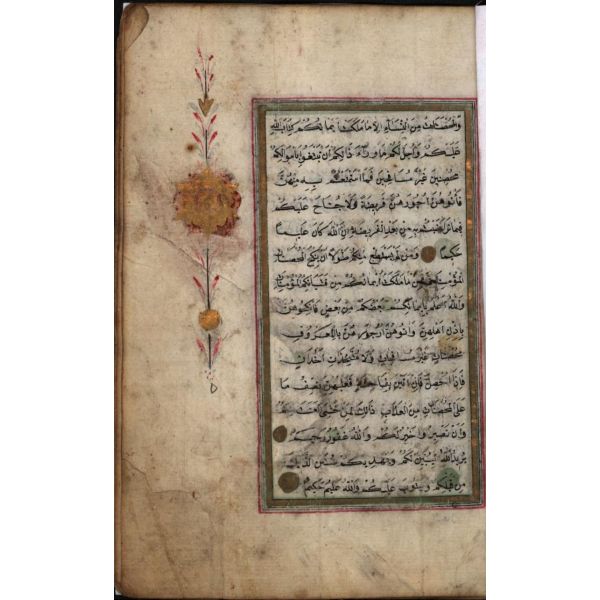 والمحصنات من النساء الا ما ملكت ايمانكم كتاب الله
عليكم واحل لكم ما وراء ذالكم ان تبتغوا باموالكم
محصنين غير مسافحين فما استمتعتم به منهن
فاتوهن اجورهن فريضة ولا جناح عليكم
فيما تراضيتم به من بعد الفريضة ان الله كان عليما
حكيما ومن لم يستطع منكم طولا ان ينكح المحصنات
المؤمنات فمن ما ملكت ايمانكم من فتياتكم المؤمنات
والله اعلم بايمانكم بعضكم من بعض فانكحوهن
باذن اهلهن واتوهن اجورهن بالمعروف
محصنات غير مسافحات ولا متخذات اخدان
فاذا احصن فان اتين بفاحشة فعليهن نصف ما
على المحصنات من العذاب ذالك لمن خشي العنت منكم
وان تصبروا خير لكم والله غفور رحيم
يريد الله ليبين لكم ويهديكم سنن الذين
من قبلكم ويتوب عليكم والله عليم حكيم